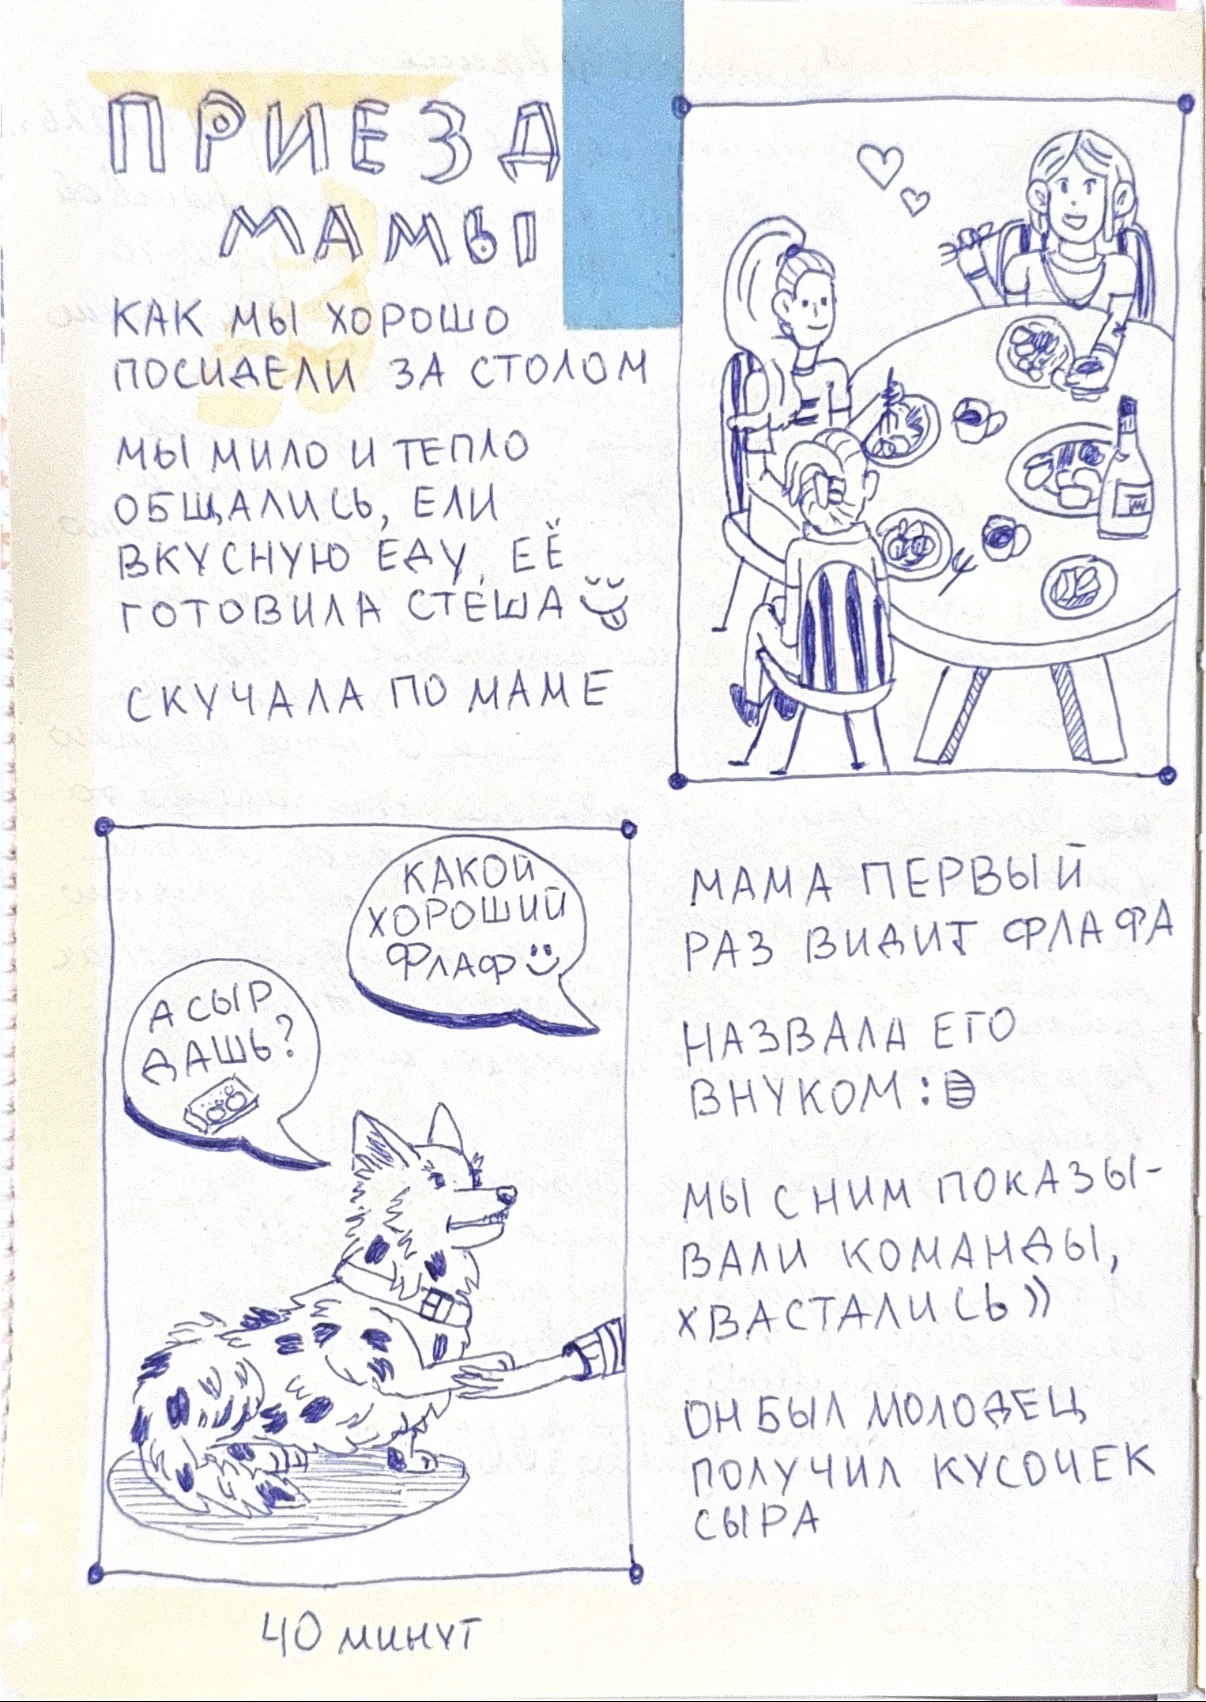 ПРИЕЗД
МАМЫ
КАК МЫ ХОРОШО
ПОСИДЕЛИ ЗА СТОЛОМ
МЫ МИЛО И ТЕПЛО
ОБЩАЛИСЬ, ЕЛИ
ВКУСНУЮ ЕДУ, ЕЁ
ГОТОВИЛА СТЕША
СКУЧАЛА ПО МАМЕ
КАКОЙ
ХОРОШИЙ
ФЛАФ
А СЫР
ДАШЬ?
МАМА ПЕРВЫЙ
РАЗ ВИДИТ ФЛАФА
НАЗВАЛА ЕГО
ВНУКОМ :D
МЫ С НИМ ПОКАЗЫ-
ВАЛИ КОМАНДЫ,
ХВАСТАЛИСЬ))
ОН БЫЛ МОЛОДЕЦ
ПОЛУЧИЛ КУСОЧЕК
СЫРА
40 МИНУТ